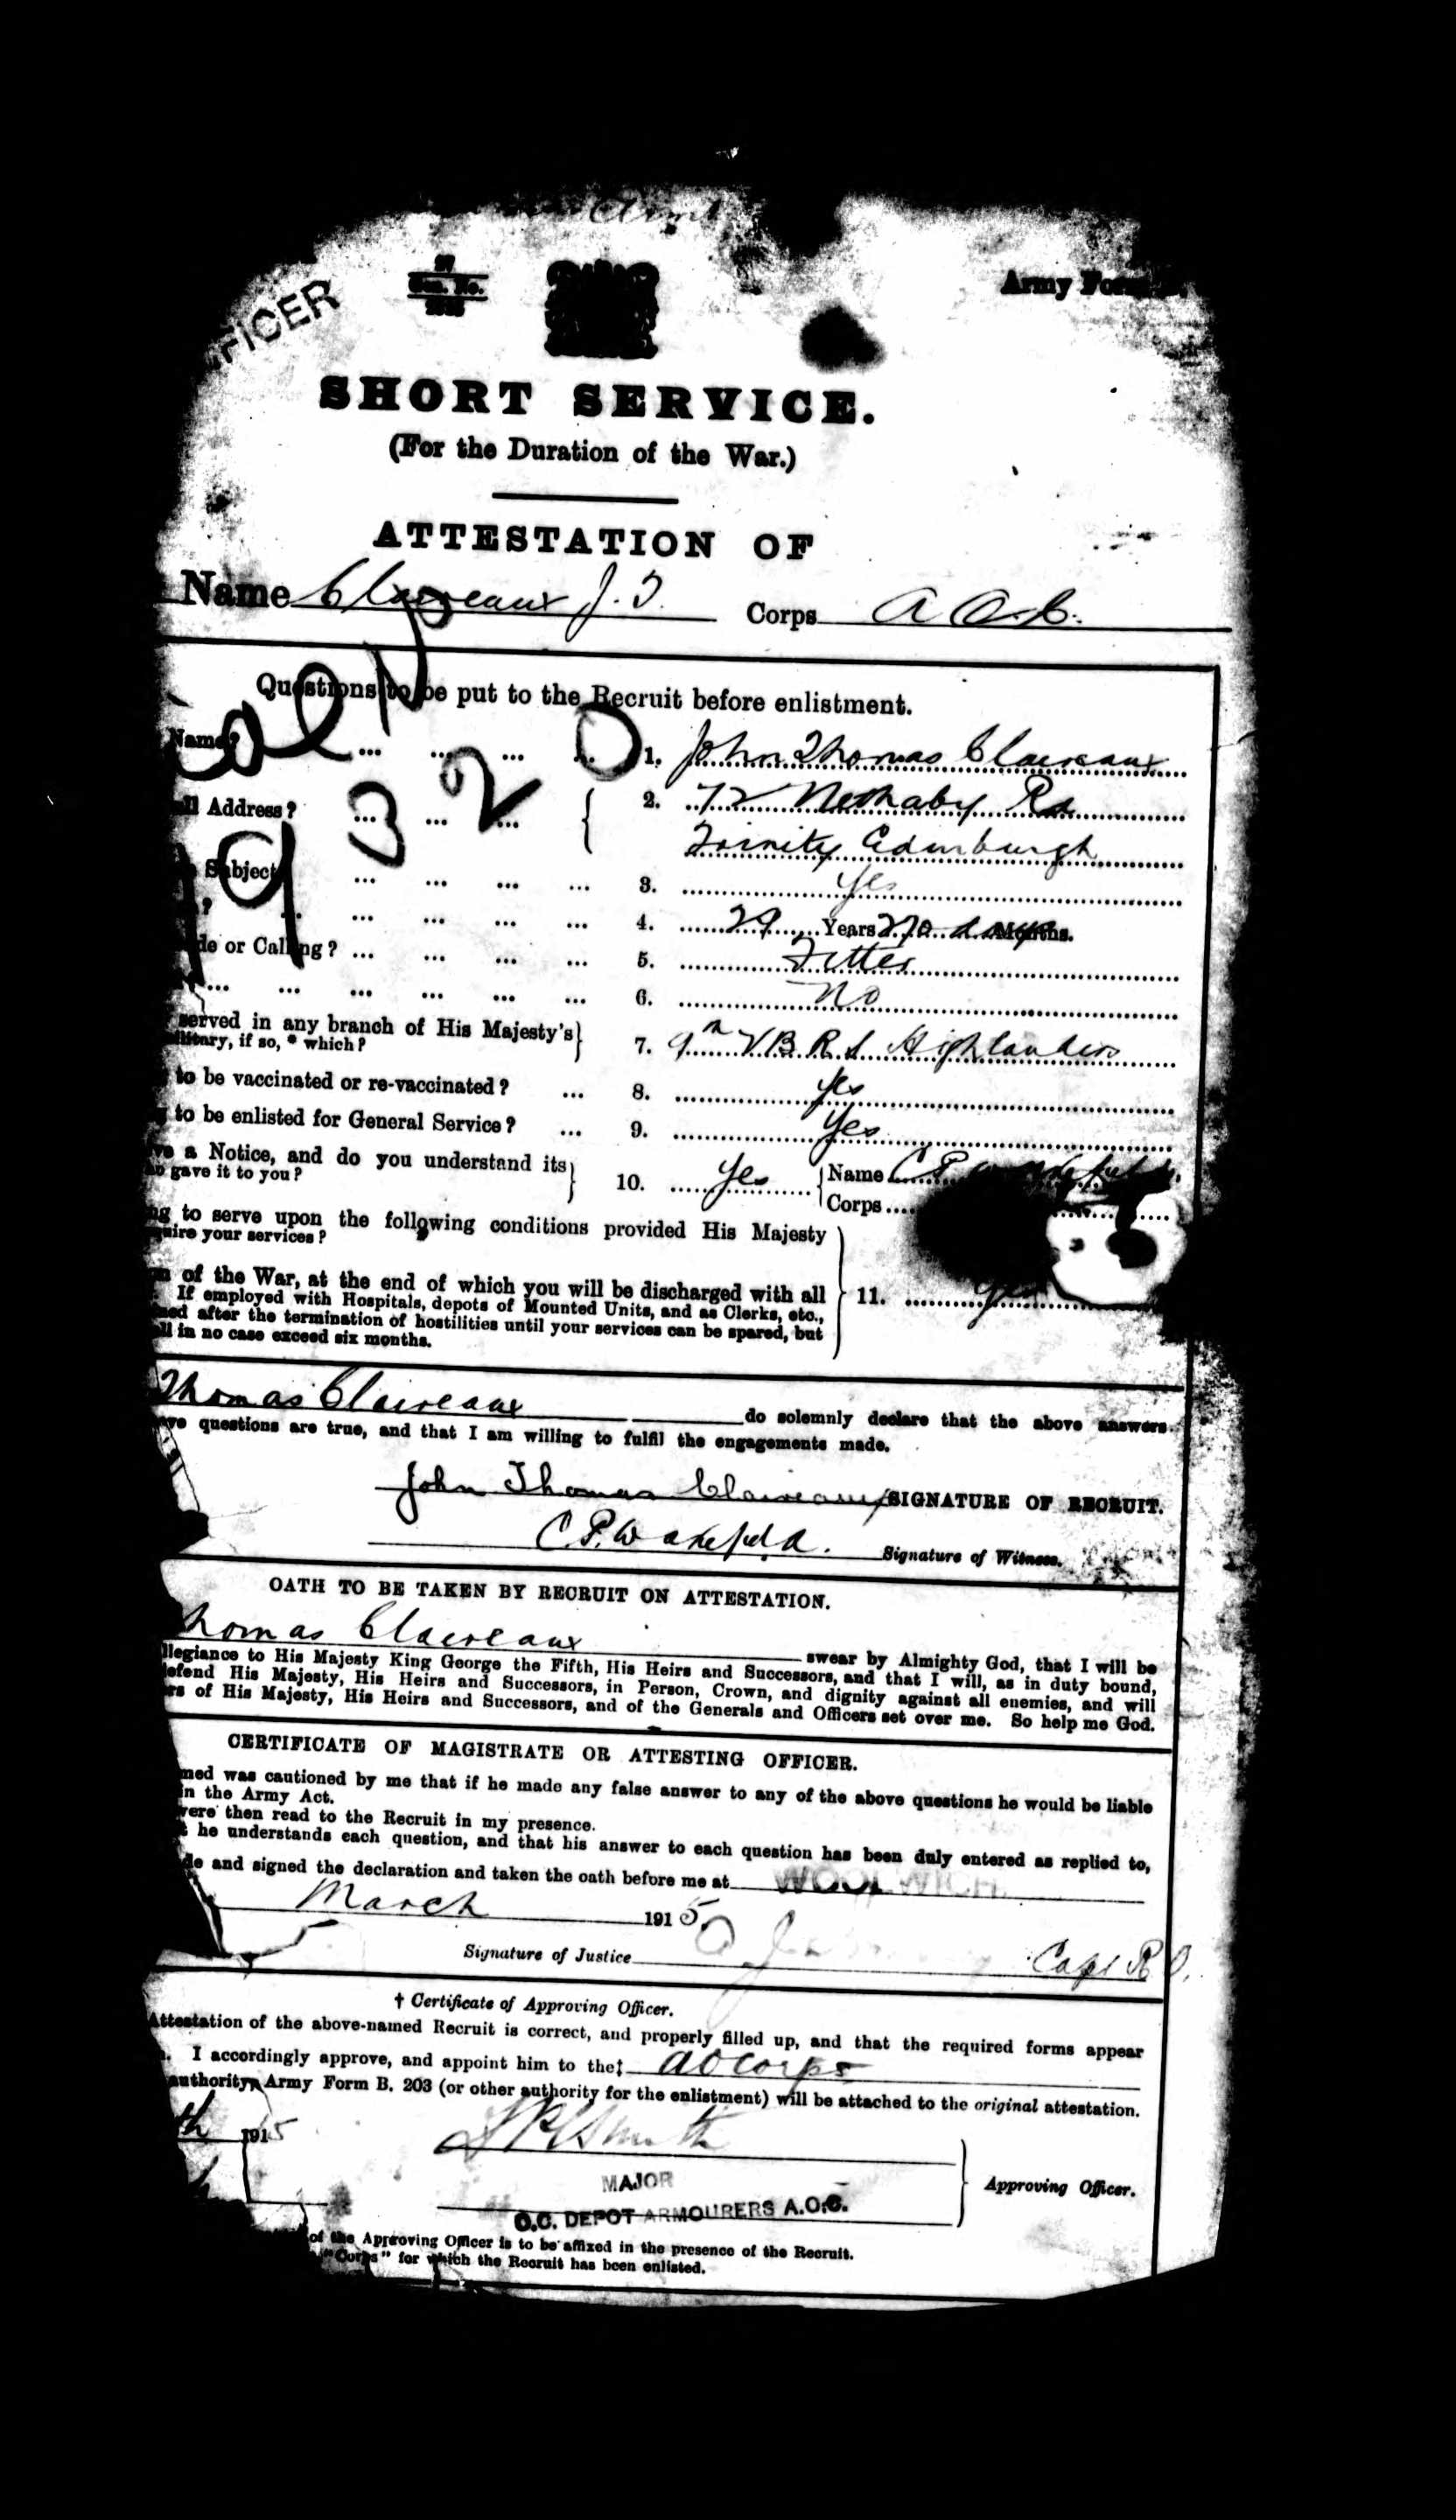 FICER
Army Form
SHORT SERVICE.
(For the Duration of the War.)
ATTESTATION OF
Name Claireaux J. T. Corps A O. C.
Questions to be put to the Recruit before enlistment.
Name? ... ... ... ... 1. John Thomas Claireaux
ll Address? ... ... ... { 2. 72 Rd
Trinity Edinburgh
Subject ... ... ... ... 3. Yes
? ... ... ... ... 4. 29 Years 270 days Months.
de or Calling? ... ... ... ... 5. Fitter
... ... ... ... ... ... 6. No
served in any branch of His Majesty's }
military, if so, * which? 7. 9th V B R S Highlanders
to be vaccinated or re-vaccinated? ... 8. Yes
to be enlisted for General Service? ... 9. Yes
ve a Notice, and do you understand its }
o gave it to you? 10. Yes { Name C P
Corps
ng to serve upon the following conditions provided His Majesty
uire your services?
n of the War, at the end of which you will be discharged with all
If employed with Hospitals, depots of Mounted Units, and as Clerks, etc., 11. Yes
ned after the termination of hostilities until your services can be spared, but
ll in no case exceed six months.
Thomas Claireaux do solemnly declare that the above answers
ove questions are true, and that I am willing to fulfil the engagements made.
John Thomas Claireaux SIGNATURE OF RECRUIT.
C P. Wakefield. Signature of Witness.
OATH TO BE TAKEN BY RECRUIT ON ATTESTATION.
homas Claireaux swear by Almighty God, that I will be
llegiance to His Majesty King George the Fifth, His Heirs and Successors, and that I will, as in duty bound,
efend His Majesty, His Heirs and Successors, in Person, Crown, and dignity against all enemies, and will
rs of His Majesty, His Heirs and Successors, and of the Generals and Officers set over me. So help me God.
CERTIFICATE OF MAGISTRATE OR ATTESTING OFFICER.
med was cautioned by me that if he made any false answer to any of the above questions he would be liable
in the Army Act.
were then read to the Recruit in my presence.
t he understands each question, and that his answer to each question has been duly entered as replied to,
de and signed the declaration and taken the oath before me at WOOLWICH
March 1915.
Signature of Justice Capt R O.
† Certificate of Approving Officer.
Attestation of the above-named Recruit is correct, and properly filled up, and that the required forms appear
I accordingly approve, and appoint him to the‡ AO Corps
authority, Army Form B. 203 (or other authority for the enlistment) will be attached to the original attestation.
th 1915 Smith
MAJOR } Approving Officer.
O.C. DEPOT ARMOURERS A.O.C.
of the Approving Officer is to be affixed in the presence of the Recruit.
"Corps" for which the Recruit has been enlisted.